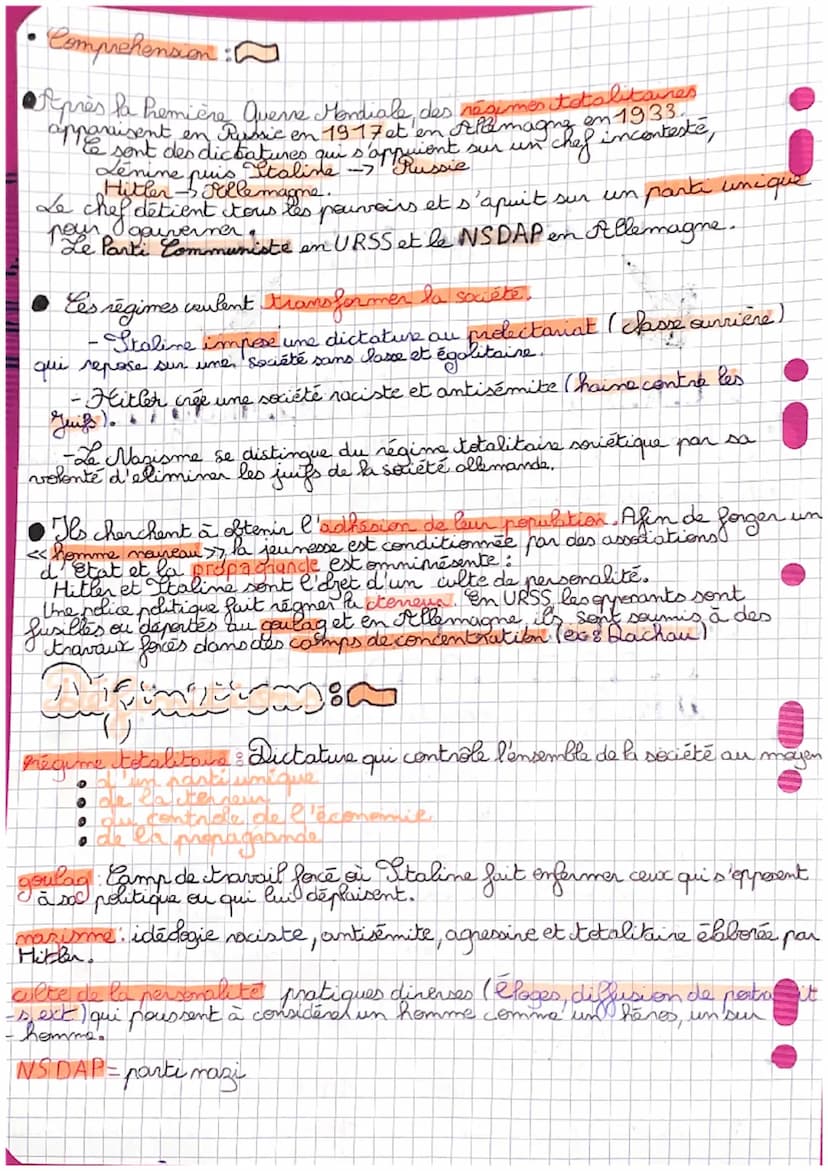 • Comprehension :
• Après la Première Guerre Mondiale, des régimes totalitaires
apparaisent en Russie en 1917 et en Allemagne en 1933.
Ce sont des dictatures qui s'appuient sur un chef incontesté,
Lénine puis Staline -> Russie
Hitler -> Allemagne.
Le chef détient tous les pouvoirs et s'apuit sur un parti unique
pour gouverner.
Le Parti Communiste en URSS et le NSDAP en Allemagne.
• Ces régimes veulent transformer la société.
- Staline impose une dictature au prolectariat (classe ouvrière)
qui repose sur une société sans classe et égalitaire.
- Hitler crée une société raciste et antisémite (haine contre les
Juifs).
- Le Nazisme se distingue du régime totalitaire soviétique par sa
volonté d'eliminer les juifs de la société allemande.
• Ils cherchent à obtenir l'adhésion de leur population. Afin de forger un
<< homme nouveau >>, la jeunesse est conditionnée par des associations
d'Etat et la propagande est omniprésente :
Hitler et Staline sont l'objet d'un culte de personalité.
Une police politique fait régner la terreur. En URSS, les opposants sont
fusillés ou déportés au goulag et en Allemagne, ils sont soumis à des
travaux forcés dans des camps de concentration (ex : Dachau)
Définitions :
régime totalitaire : Dictature qui contrôle l'ensemble de la société au moyen
• d'un parti unique
• de la terreur
• du controle de l'économie
• de la propagande
goulag : Camp de travail forcé où Staline fait enfermer ceux qui s'opposent
à sa politique ou qui lui déplaisent.
nazisme : idéologie raciste, antisémite, agressive et totalitaire élaborée par
Hitler.
culte de la personalité pratiques diverses (éloges, diffusion de portrait
-s, ext) qui poussent à considérer un homme comme un héros, un sur
- homme.
NSDAP = parti nazi